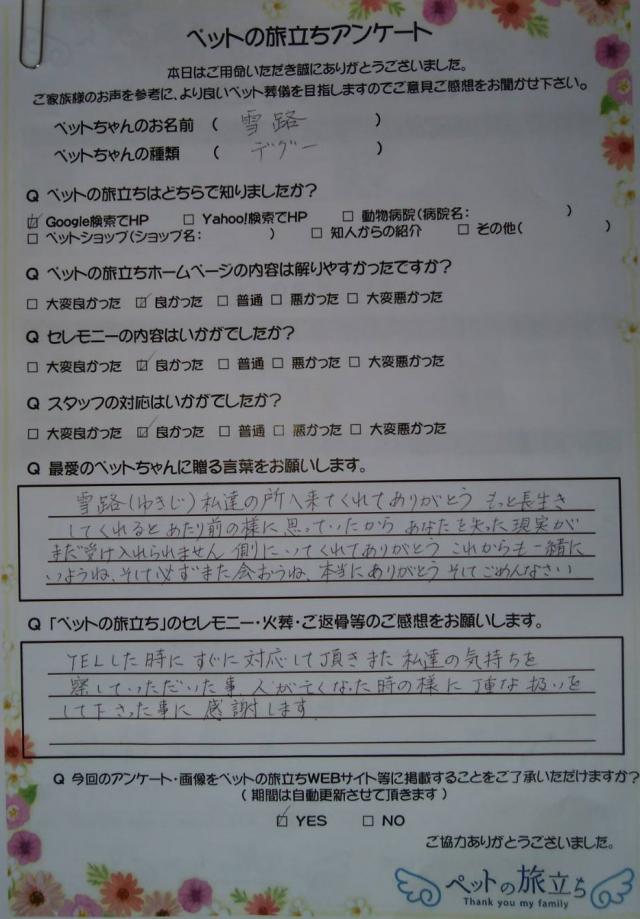 ペットの旅立ちアンケート
本日はご用命いただき誠にありがとうございました。
ご家族様のお声を参考に、より良いペット葬儀を目指しますのでご意見ご感想をお聞かせ下さい。
ペットちゃんのお名前 ( 雪路 )
ペットちゃんの種類 ( デグー )
Q ペットの旅立ちはどちらで知りましたか?
☑ Google検索でHP □ Yahoo!検索でHP □ 動物病院(病院名: )
□ ペットショップ(ショップ名: ) □ 知人からの紹介 □ その他( )
Q ペットの旅立ちホームページの内容は解りやすかったですか?
□ 大変良かった ☑ 良かった □ 普通 □ 悪かった □ 大変悪かった
Q セレモニーの内容はいかがでしたか?
□ 大変良かった ☑ 良かった □ 普通 □ 悪かった □ 大変悪かった
Q スタッフの対応はいかがでしたか?
□ 大変良かった ☑ 良かった □ 普通 □ 悪かった □ 大変悪かった
Q 最愛のペットちゃんに贈る言葉をお願いします。
雪路(ゆきじ)私達の所へ来てくれてありがとう もっと長生き
してくれるとあたり前の様に思っていたから あなたを失った現実が
まだ受け入れられません 側にいってくれてありがとう これからも一緒に
いようね、そして必ずまた会おうね、本当にありがとう そしてごめんなさい
Q 「ペットの旅立ち」のセレモニー・火葬・ご返骨等のご感想をお願いします。
TELした時に すぐに対応して頂き また 私達の気持ちを
察していっただいた事、人が亡くなった時の様に 丁重な扱いを
して下さった事に 感謝します
Q 今回のアンケート・画像をペットの旅立ちWEBサイト等に掲載することをご了承いただけますか?
( 期間は自動更新させて頂きます )
☑ YES □ NO
ご協力ありがとうございました。
ペットの旅立ち
Thank you my family